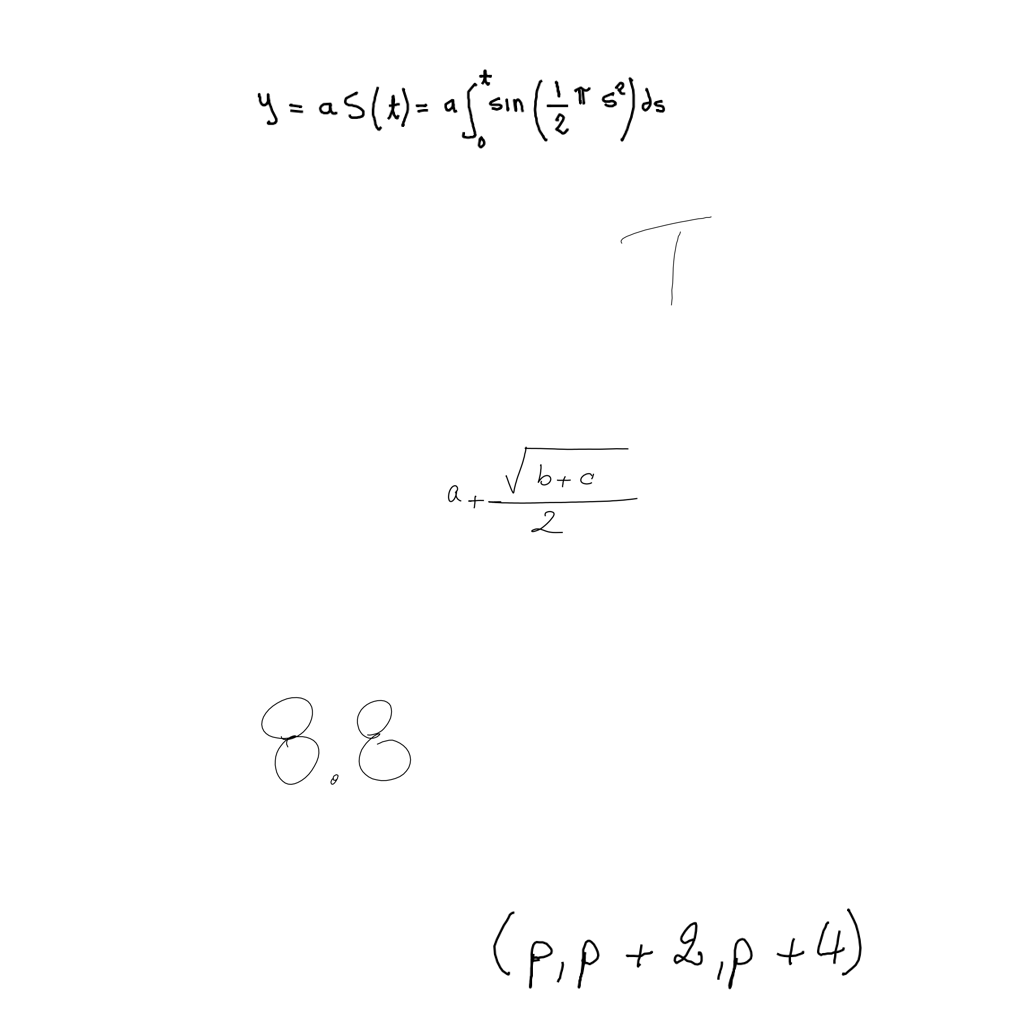 y = a S(t) = a ∫₀ᵗ sin(½ π s²) ds
T
a + √(b + c) / 2
8.8
(p, p + 2, p + 4)